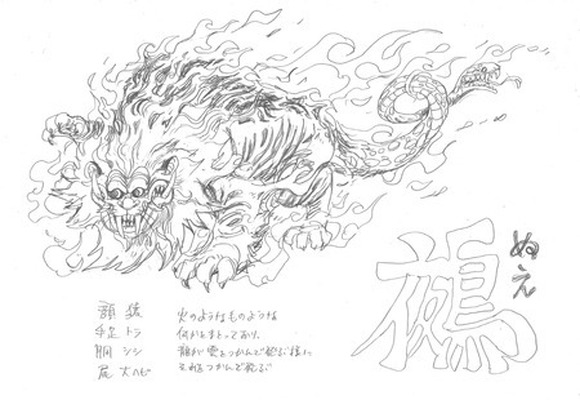 鵺
ぬえ
頭 猿
手足 トラ
胴 シシ
尾 大ヘビ
火のようなもののような
何かをまとっており、
龍が雲をつかんで飛ぶ様に
それをつかんで飛ぶ